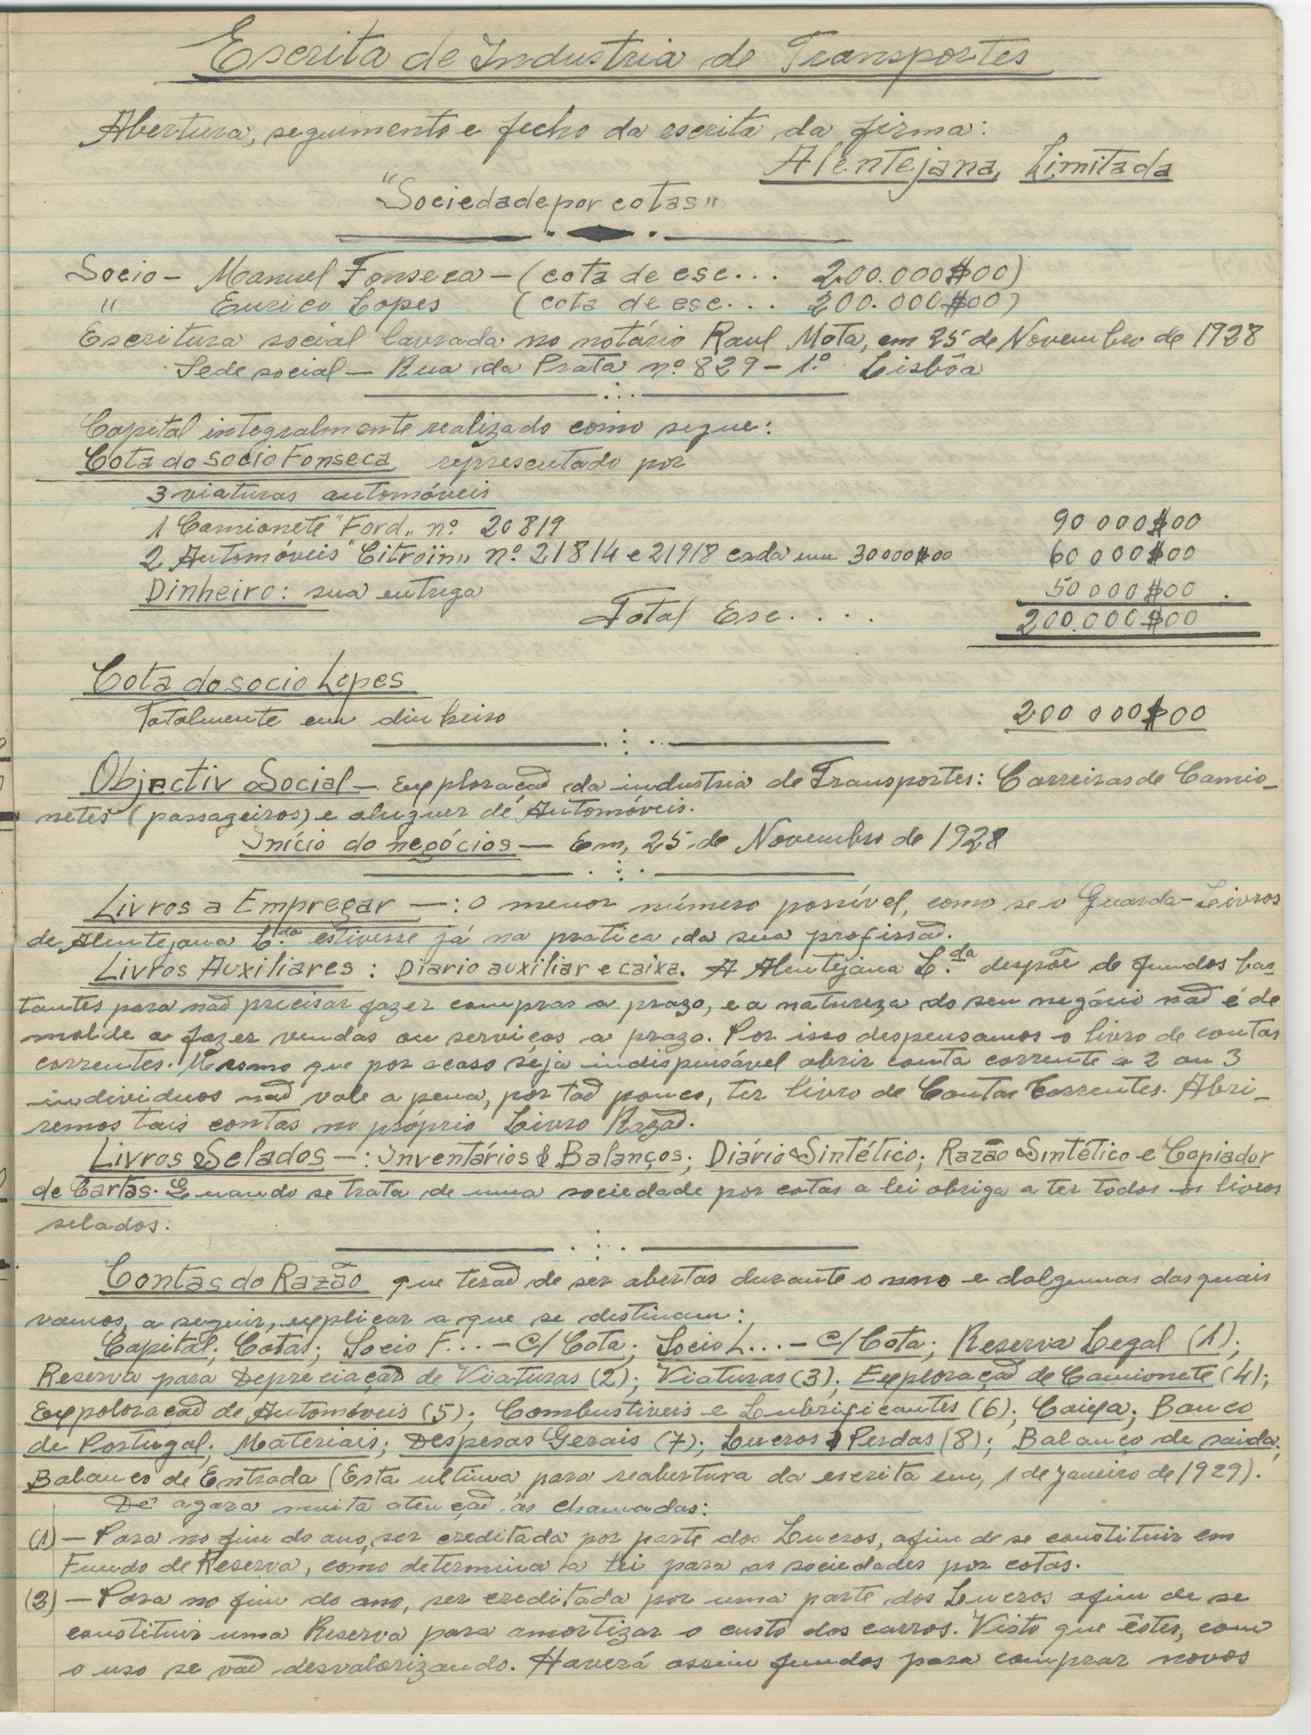 Escrita de Industria de Transportes
Abertura, seguimento e fecho da escrita da firma:
Alentejana, Limitada
"Sociedade por cotas"
Socio – Manuel Fonseca – (cota de esc... 200.000$00)
" Eurico Lopes (cota de esc... 200.000$00)
Escritura social lavrada no notário Raul Mota, em 25 de Novembro de 1928
Sede social – Rua da Prata nº 829 – 1.º Lisbôa
Capital integralmente realizado como segue:
Cota do socio Fonseca representado por
3 viaturas automóveis
1 Camionete "Ford" nº 20819 90 000$00
2 Automóveis "Citroïn" nº 21814 e 21918 cada um 30000$00 60 000$00
Dinheiro: sua entrega 50 000$00
Total Esc.... 200.000$00
Cota do socio Lopes
Totalmente em dinheiro 200 000$00
Objectiv Social – Exploração da industria de Transportes: Carreiras de Camio-
netes (passageiros) e aluguer de Automóveis.
Início do negócios – Em, 25 de Novembro de 1928
Livros a Empregar –: O menor número possível, como se o Guarda-Livros
de Alentejana L.da estivesse já na pratica da sua profissão.
Livros Auxiliares: Diario auxiliar e caixa. A Alentejana L.da despõe de fundos bas-
tantes para não precisar fazer compras a prazo, e a natureza do seu negócio não é de
molde a fazer vendas ou serviços a prazo. Por isso despensamos o livro de contas
correntes. Mesmo que por acaso seja indispensável abrir conta corrente a 2 ou 3
individuos não vale a pena, por tão pouco, ter livro de Contas Correntes. Abri-
remos tais contas no próprio Livro Razão.
Livros Selados –: Inventários & Balanços; Diário Sintético; Razão Sintético e Copiador
de Cartas. Quando se trata de uma sociedade por cotas a lei obriga a ter todos os livros
selados.
Contas do Razão que terão de ser abertas durante o ano e dalgumas das quais
vamos, a seguir, explicar a que se destinam:
Capital; Cotas; Socio F... – c/ Cota; Socio L... – c/ Cota; Reserva Legal (1);
Reserva para Depreciação de Viaturas (2); Viaturas (3); Exploração de Camionete (4);
Expoloração de Automóveis (5); Combustiveis e Lubrificantes (6); Caixa; Banco
de Portugal; Materiais; Despesas Gerais (7); Lucros & Perdas (8); Balanço de saida;
Balanço de Entrada (Esta ultima para reabertura da escrita em, 1 de Janeiro de 1929).
Dê agora muita atenção às chamadas:
(1) – Para no fim do ano, ser creditada por parte dos Lucros, afim de se constituir em
Fundo de Reserva, como determina a lei para as sociedades por cotas.
(2) – Para no fim do ano, ser creditada por uma parte dos Lucros afim de se
constituir uma Reserva para amortizar o custo dos carros. Visto que êstes, com
o uso se vão desvalorizando. Haverá assim fundos para comprar novos